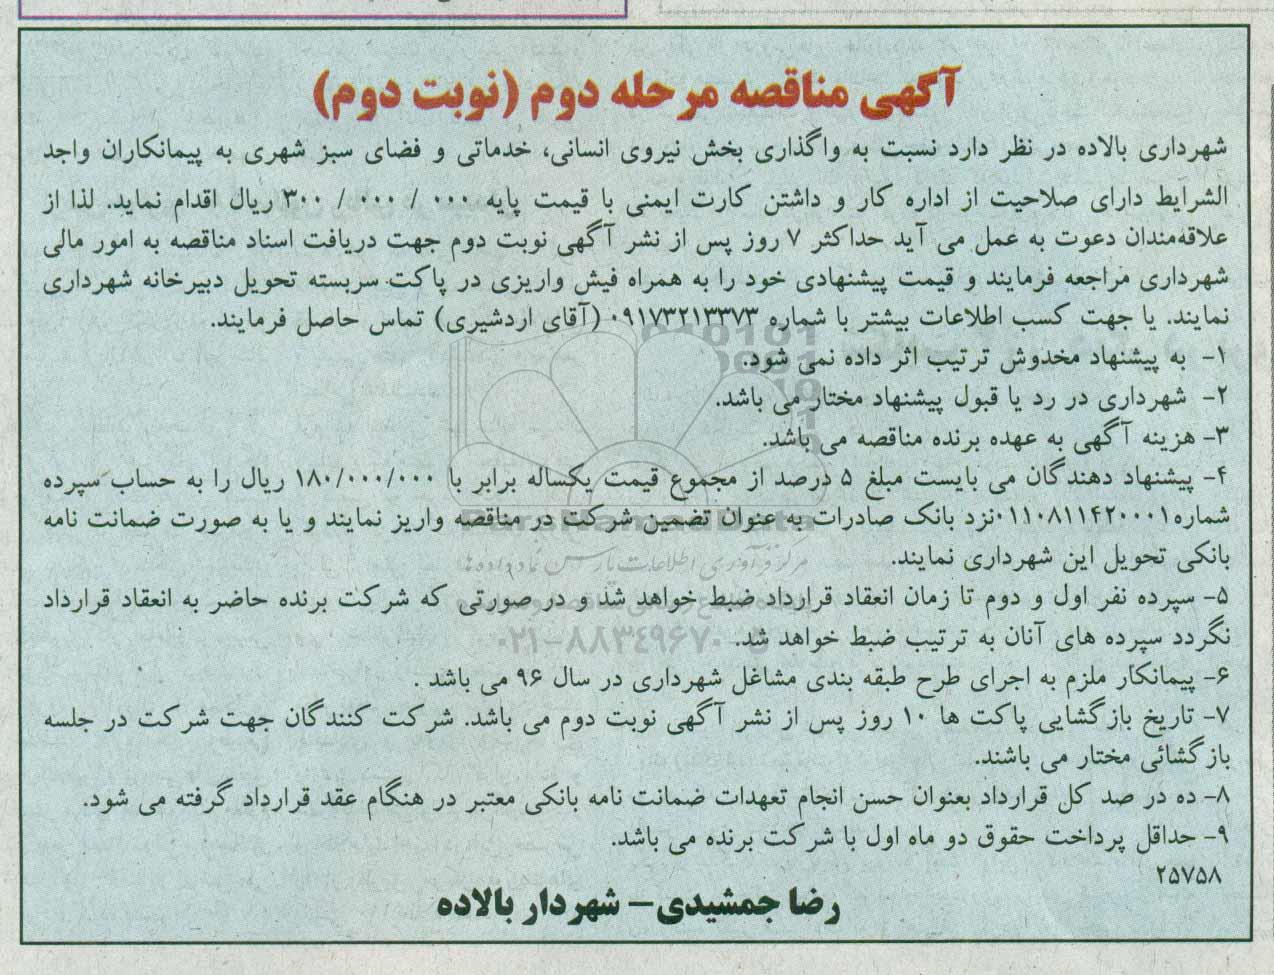 آگهی مناقصه مرحله دوم (نوبت دوم)
شهرداری بالاده در نظر دارد نسبت به واگذاری بخش نیروی انسانی، خدماتی و فضای سبز شهری به پیمانکاران واجد
الشرایط دارای صلاحیت از اداره کار و داشتن کارت ایمنی با قیمت پایه ۰۰۰ / ۰۰۰ / ۳۰۰ ریال اقدام نماید. لذا از
علاقه‌مندان دعوت به عمل می آید حداکثر ۷ روز پس از نشر آگهی نوبت دوم جهت دریافت اسناد مناقصه به امور مالی
شهرداری مراجعه فرمایند و قیمت پیشنهادی خود را به همراه فیش واریزی در پاکت سربسته تحویل دبیرخانه شهرداری
نمایند. یا جهت کسب اطلاعات بیشتر با شماره ۰۹۱۷۳۲۱۳۳۷۳ (آقای اردشیری) تماس حاصل فرمایند.
۱- به پیشنهاد مخدوش ترتیب اثر داده نمی شود.
۲- شهرداری در رد یا قبول پیشنهاد مختار می باشد.
۳- هزینه آگهی به عهده برنده مناقصه می باشد.
۴- پیشنهاد دهندگان می بایست مبلغ ۵ درصد از مجموع قیمت یکساله برابر با ۱۸۰/۰۰۰/۰۰۰ ریال را به حساب سپرده
شماره۰۱۱۰۸۱۱۴۲۰۰۰۱نزد بانک صادرات به عنوان تضمین شرکت در مناقصه واریز نمایند و یا به صورت ضمانت نامه
بانکی تحویل این شهرداری نمایند.
۵- سپرده نفر اول و دوم تا زمان انعقاد قرارداد ضبط خواهد شد و در صورتی که شرکت برنده حاضر به انعقاد قرارداد
نگردد سپرده های آنان به ترتیب ضبط خواهد شد.
۶- پیمانکار ملزم به اجرای طرح طبقه بندی مشاغل شهرداری در سال ۹۶ می باشد .
۷- تاریخ بازگشایی پاکت ها ۱۰ روز پس از نشر آگهی نوبت دوم می باشد. شرکت کنندگان جهت شرکت در جلسه
بازگشائی مختار می باشند.
۸- ده در صد کل قرارداد بعنوان حسن انجام تعهدات ضمانت نامه بانکی معتبر در هنگام عقد قرارداد گرفته می شود.
۹- حداقل پرداخت حقوق دو ماه اول با شرکت برنده می باشد.
۲۵۷۵۸
رضا جمشیدی- شهردار بالاده
ParsNamadData
مرکز فرآوری اطلاعات پارس نماد داده ها
۰۲۱-۸۸۳۴۹۶۷۰